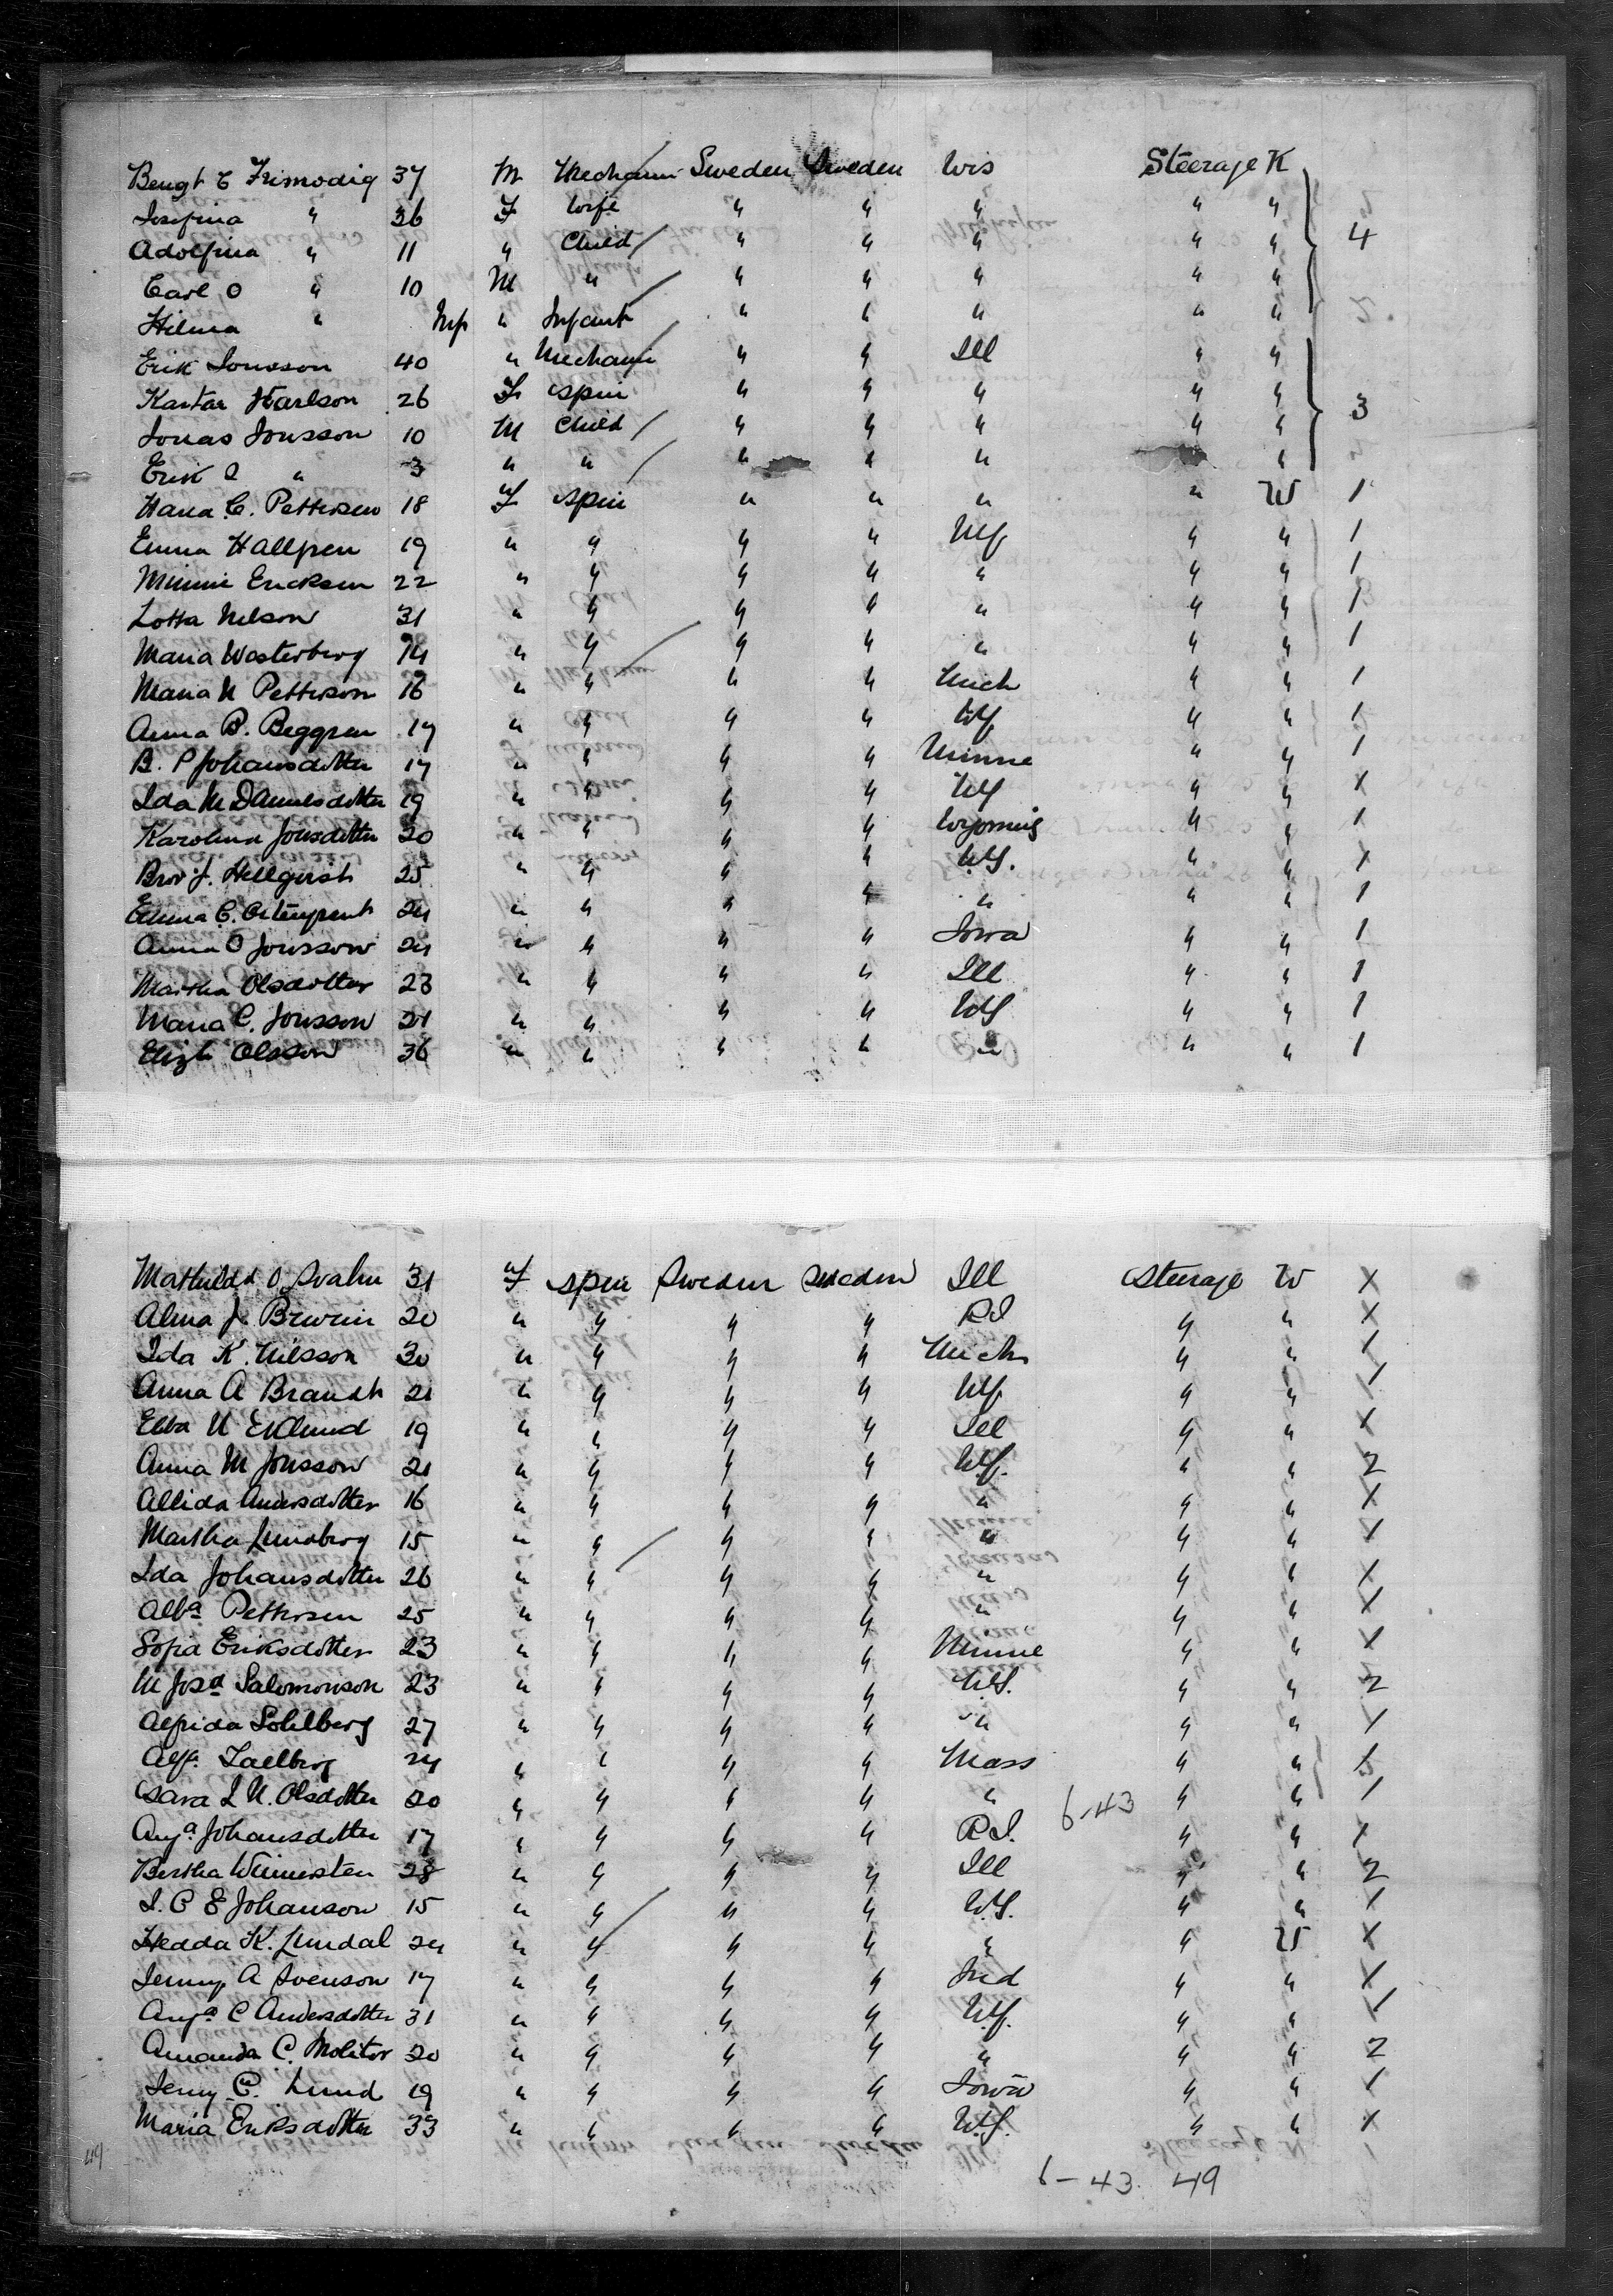 Bengt E Frimodig 37 M Mechanic Sweden Sweden Wis Steerage K
Josefina " 36 F Wife " " " " "
Adolfina " 11 " Child " " " " " 4
Carl O " 10 M " " " " " "
Hilma " Inf " Infant " " " " "
Erik Jonsson 40 " Mechanic " " Ill " "
Karlson 26 F spin " " " " " 3
Jonas Jonsson 10 M Child " " " " "
Erik O " 3 " " " " " "
Hana C. Petterson 18 F spin " " " " W 1
Emma Hallgren 19 " " " " NY " " 1
Minnie Erickson 22 " " " " " " " 1
Lotta Nelson 31 " " " " " " " 1
Maria Westerberg 14 " " " " " " " 1
Maria N Petterson 16 " " " " Mich " " 1
Anna B. Beggren 17 " " " " NY " " 1
B. P Johansdotter 17 " " " " Minne " " 1
Ida M Danielsdotter 19 " " " " NY " " X
Karolina Jonsdotter 20 " " " " Wyoming " " 1
J. Hellquist 25 " " " " N.Y. " " X
Emma C. 24 " " " " " " " 1
Anna O Jonsson 24 " " " " Iowa " " 1
Martha Olsdotter 23 " " " " Ill " " 1
Maria C. Jonsson 21 " " " " NY " " 1
Elizh Olsson 36 " " " " " " " 1
Mathilda O Svahn 31 F spin Sweden Sweden Ill Steerage W X
Alma J. 20 " " " " RI " " X
Ida K. Nilsson 30 " " " " Mich " " 1
Anna A Brandt 21 " " " " NY " " 1
Ebba N Eklund 19 " " " " Ill " " X
Anna M Jonsson 21 " " " " N.Y. " " 2
Albida Andersdotter 16 " " " " " " " X
Martha Lundberg 15 " " " " " " " X
Ida Johansdotter 26 " " " " " " " X
Alba Petterson 25 " " " " " " " X
Sofia Eriksdotter 23 " " " " Minne " " X
M Josa Salomonson 23 " " " " N.Y. " " 2
Alfrida Sohlberg 27 " " " " " " " 1
Alfa 24 " " " " Mass " "
Sara L N. Olsdotter 20 " " " " " 6-43 " " 1
Auga Johansdotter 17 " " " " R.I. " " X
Bertha 28 " " " " Ill " " 2
I. C E Johanson 15 " " " " N.Y. " " X
Hedda K. Lundal 24 " " " " " " W X
Jenny A Svenson 17 " " " " Ind " " X
Auga C Andersdotter 31 " " " " N.Y. " " 1
Amanda C. Molitor 20 " " " " " " " 2
Jenny C. Lund 19 " " " " Iowa " " 1
Maria Eriksdotter 33 " " " " N.Y. " " X
49
6-43 49